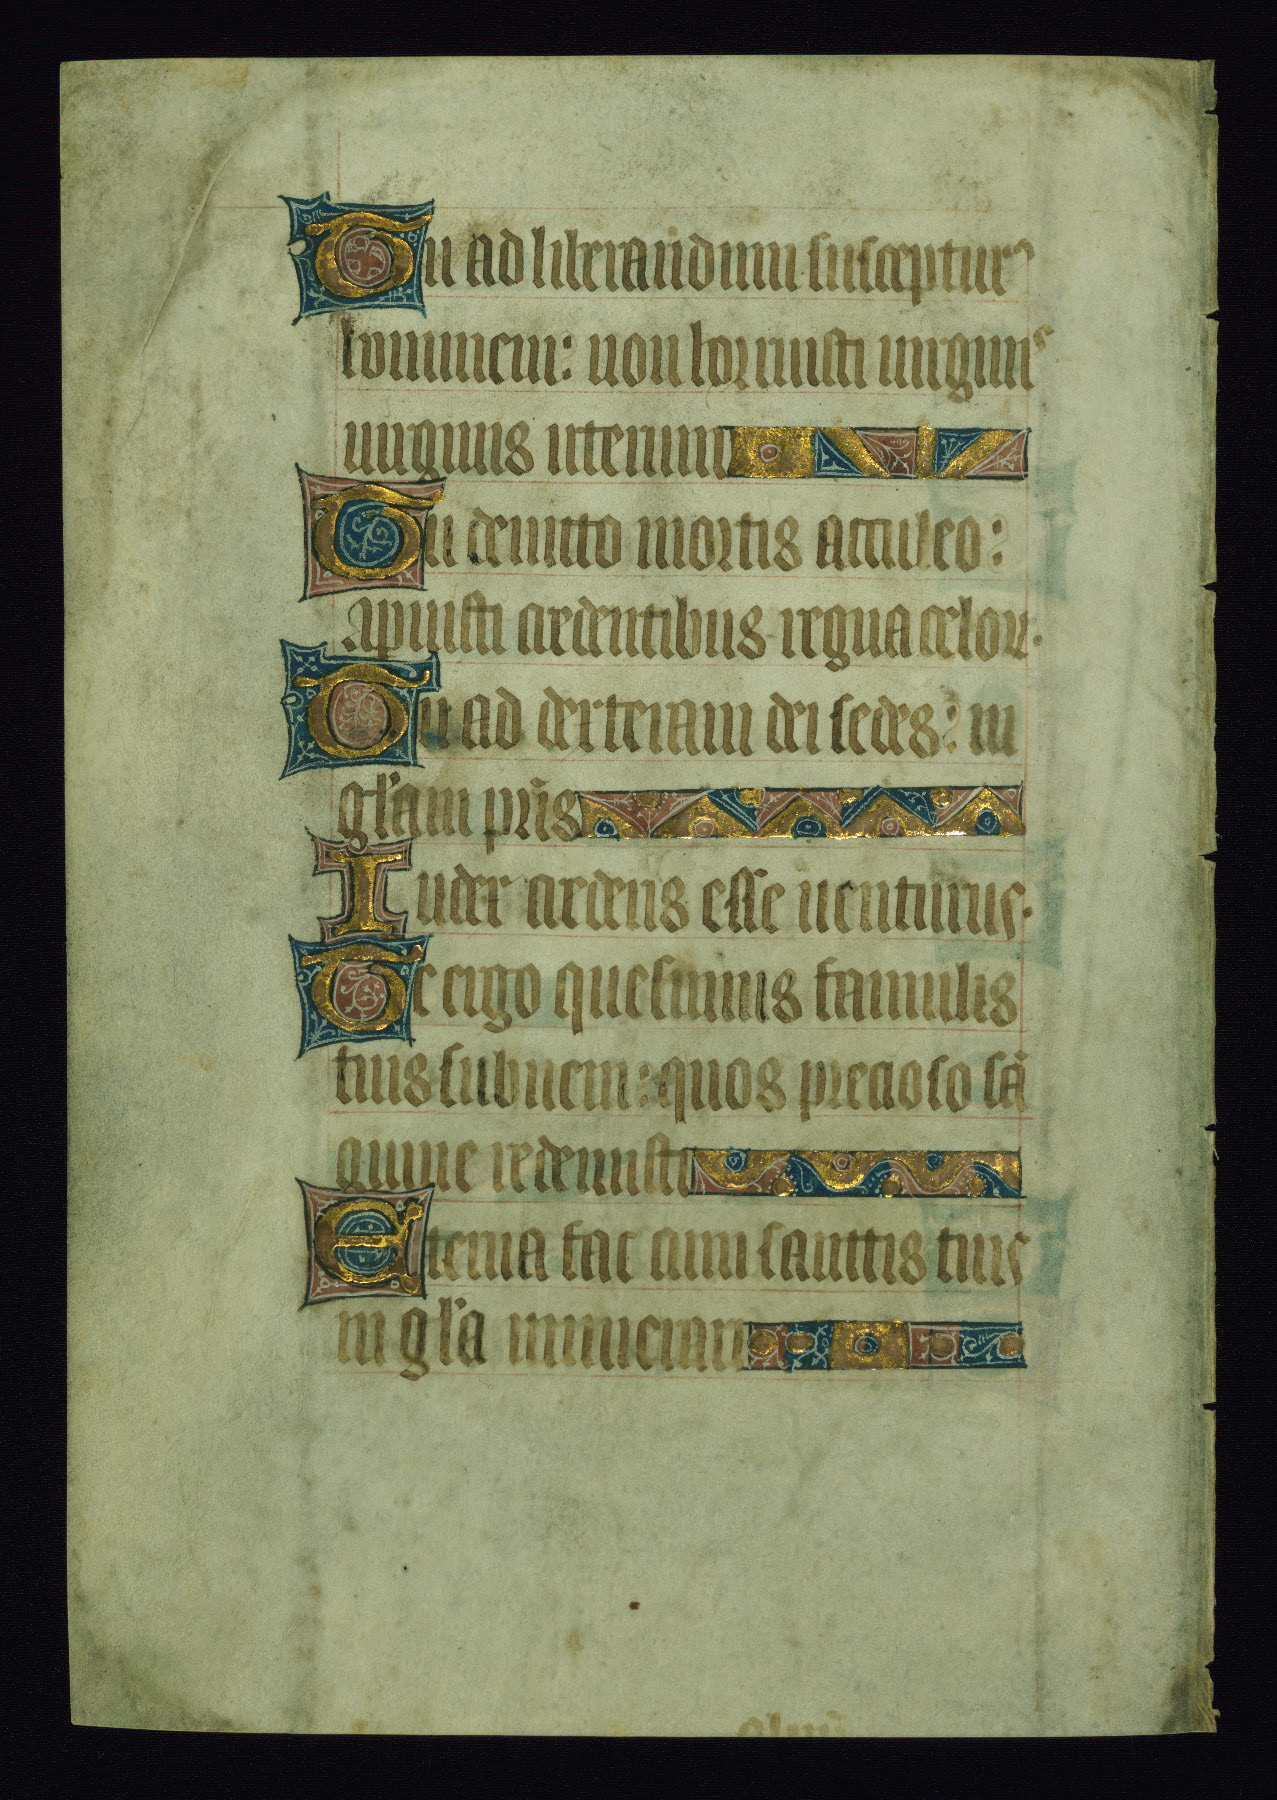 Tu ad liberandum susceptur⁹
hominem: non horruisti uirginis
uirginis uterum
Tu deuicto mortis aculeo:
Aperuisti credentibus regna celorꝝ.
Tu ad dexteram dei sedes: in
gl'am pr̄is
Iudex crederis esse uenturus.
Te ergo quesumus famulis
tuis subueni: quos precioso sā
guine redemisti
Eterna fac cum sanctis tuis
in gl'a numerari